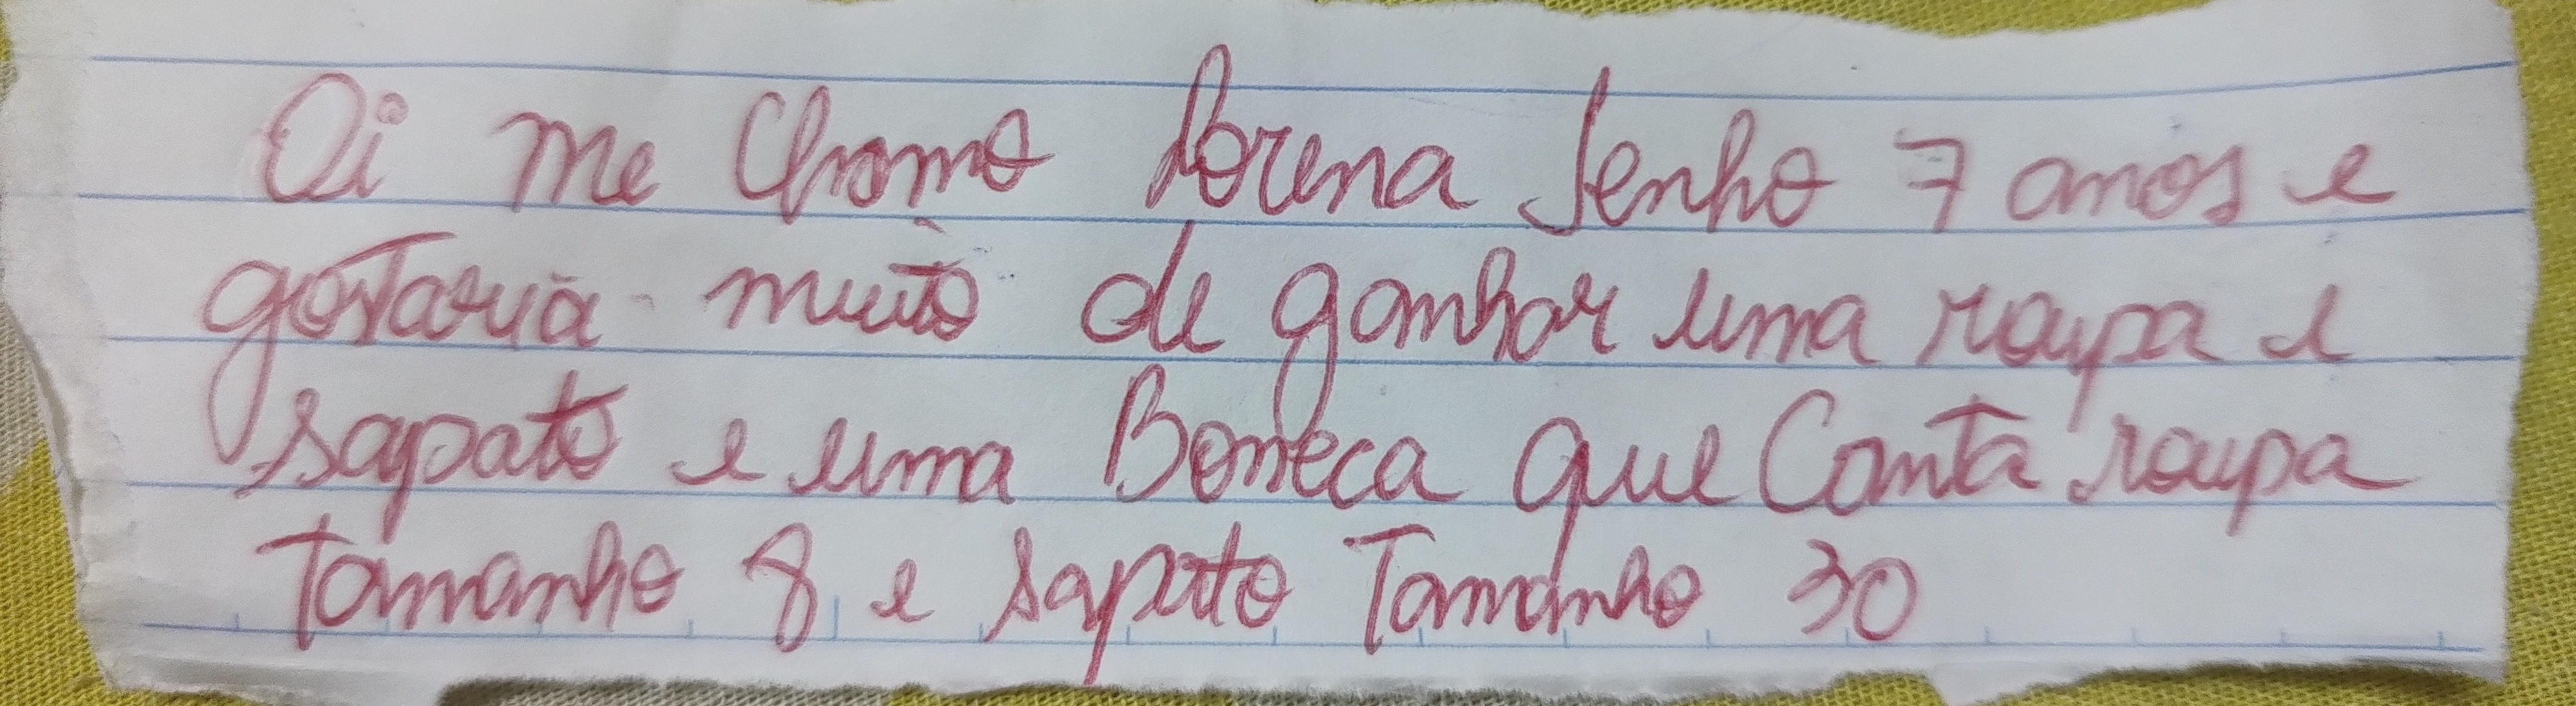 Oi me Chamo Lorena Tenho 7 anos e
gostaria muito de ganhar uma roupa e
sapato e uma Boneca que Canta roupa
Tamanho 8 e sapato Tamanho 30